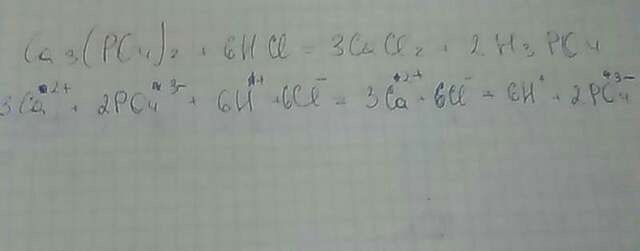 Ca3(PO4)2 + 6HCl = 3CaCl2 + 2H3PO4
3Ca²⁺ + 2PO4³⁻ + 6H⁺ + 6Cl⁻ = 3Ca²⁺ + 6Cl⁻ + 6H⁺ + 2PO4³⁻